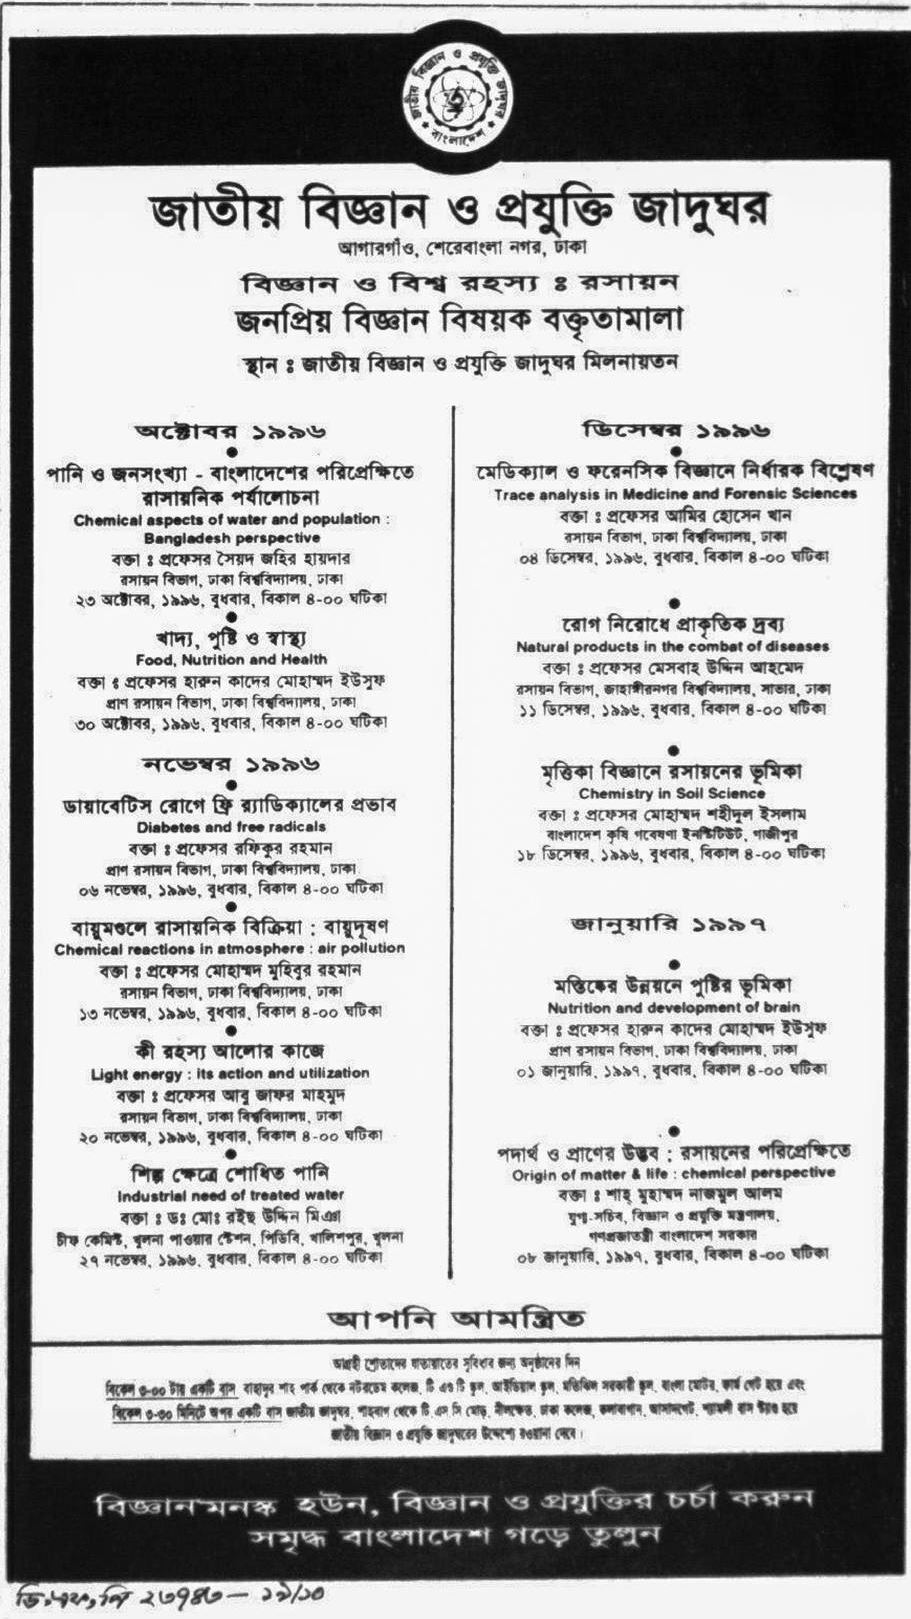 জাতীয় বিজ্ঞান ও প্রযুক্তি জাদুঘর
★ বাংলাদেশ ★
জাতীয় বিজ্ঞান ও প্রযুক্তি জাদুঘর
আগারগাঁও, শেরেবাংলা নগর, ঢাকা
বিজ্ঞান ও বিশ্ব রহস্য ঃ রসায়ন
জনপ্রিয় বিজ্ঞান বিষয়ক বক্তৃতামালা
স্থান ঃ জাতীয় বিজ্ঞান ও প্রযুক্তি জাদুঘর মিলনায়তন
অক্টোবর ১৯৯৬
পানি ও জনসংখ্যা - বাংলাদেশের পরিপ্রেক্ষিতে
রাসায়নিক পর্যালোচনা
Chemical aspects of water and population :
Bangladesh perspective
বক্তা ঃ প্রফেসর সৈয়দ জহির হায়দার
রসায়ন বিভাগ, ঢাকা বিশ্ববিদ্যালয়, ঢাকা
২৩ অক্টোবর, ১৯৯৬, বুধবার, বিকাল ৪-০০ ঘটিকা
খাদ্য, পুষ্টি ও স্বাস্থ্য
Food, Nutrition and Health
বক্তা ঃ প্রফেসর হারুন কাদের মোহাম্মদ ইউসুফ
প্রাণ রসায়ন বিভাগ, ঢাকা বিশ্ববিদ্যালয়, ঢাকা
৩০ অক্টোবর, ১৯৯৬, বুধবার, বিকাল ৪-০০ ঘটিকা
নভেম্বর ১৯৯৬
ডায়াবেটিস রোগে ফ্রি র‍্যাডিক্যালের প্রভাব
Diabetes and free radicals
বক্তা ঃ প্রফেসর রফিকুর রহমান
প্রাণ রসায়ন বিভাগ, ঢাকা বিশ্ববিদ্যালয়, ঢাকা
০৬ নভেম্বর, ১৯৯৬, বুধবার, বিকাল ৪-০০ ঘটিকা
বায়ুমণ্ডলে রাসায়নিক বিক্রিয়া : বায়ুদূষণ
Chemical reactions in atmosphere : air pollution
বক্তা ঃ প্রফেসর মোহাম্মদ মুহিবুর রহমান
রসায়ন বিভাগ, ঢাকা বিশ্ববিদ্যালয়, ঢাকা
১৩ নভেম্বর, ১৯৯৬, বুধবার, বিকাল ৪-০০ ঘটিকা
কী রহস্য আলোর কাজে
Light energy : its action and utilization
বক্তা ঃ প্রফেসর আবু জাফর মাহমুদ
রসায়ন বিভাগ, ঢাকা বিশ্ববিদ্যালয়, ঢাকা
২০ নভেম্বর, ১৯৯৬, বুধবার, বিকাল ৪-০০ ঘটিকা
শিল্প ক্ষেত্রে শোধিত পানি
Industrial need of treated water
বক্তা ঃ ডঃ মোঃ রইছ উদ্দিন মিঞা
চীফ কেমিস্ট, খুলনা পাওয়ার স্টেশন, পিডিবি, খালিশপুর, খুলনা
২৭ নভেম্বর, ১৯৯৬, বুধবার, বিকাল ৪-০০ ঘটিকা
ডিসেম্বর ১৯৯৬
মেডিক্যাল ও ফরেনসিক বিজ্ঞানে নির্ধারক বিশ্লেষণ
Trace analysis in Medicine and Forensic Sciences
বক্তা ঃ প্রফেসর আমির হোসেন খান
রসায়ন বিভাগ, ঢাকা বিশ্ববিদ্যালয়, ঢাকা
০৪ ডিসেম্বর, ১৯৯৬, বুধবার, বিকাল ৪-০০ ঘটিকা
রোগ নিরোধে প্রাকৃতিক দ্রব্য
Natural products in the combat of diseases
বক্তা ঃ প্রফেসর মেসবাহ উদ্দিন আহমেদ
রসায়ন বিভাগ, জাহাঙ্গীরনগর বিশ্ববিদ্যালয়, সাভার, ঢাকা
১১ ডিসেম্বর, ১৯৯৬, বুধবার, বিকাল ৪-০০ ঘটিকা
মৃত্তিকা বিজ্ঞানে রসায়নের ভূমিকা
Chemistry in Soil Science
বক্তা ঃ প্রফেসর মোহাম্মদ শহীদুল ইসলাম
বাংলাদেশ কৃষি গবেষণা ইনস্টিটিউট, গাজীপুর
১৮ ডিসেম্বর, ১৯৯৬, বুধবার, বিকাল ৪-০০ ঘটিকা
জানুয়ারি ১৯৯৭
মস্তিষ্কের উন্নয়নে পুষ্টির ভূমিকা
Nutrition and development of brain
বক্তা ঃ প্রফেসর হারুন কাদের মোহাম্মদ ইউসুফ
প্রাণ রসায়ন বিভাগ, ঢাকা বিশ্ববিদ্যালয়, ঢাকা
০১ জানুয়ারি, ১৯৯৭, বুধবার, বিকাল ৪-০০ ঘটিকা
পদার্থ ও প্রাণের উদ্ভব : রসায়নের পরিপ্রেক্ষিতে
Origin of matter & life : chemical perspective
বক্তা ঃ শাহ্ মুহাম্মদ নাজমুল আলম
যুগ্ম-সচিব, বিজ্ঞান ও প্রযুক্তি মন্ত্রণালয়,
গণপ্রজাতন্ত্রী বাংলাদেশ সরকার
০৮ জানুয়ারি, ১৯৯৭, বুধবার, বিকাল ৪-০০ ঘটিকা
আপনি আমন্ত্রিত
আগ্রহী শ্রোতাদের যাতায়াতের সুবিধার জন্য অনুষ্ঠানের দিন
বিকেল ৩-০০ টায় একটি বাস বাহাদুর শাহ পার্ক থেকে নটরডেম কলেজ, টি এণ্ড টি স্কুল, আইডিয়াল স্কুল, মতিঝিল সরকারী স্কুল, বাংলা মোটর, ফার্ম গেট হয়ে এবং
বিকেল ৩-৩০ মিনিটে অপর একটি বাস জাতীয় জাদুঘর, শাহবাগ থেকে টি.এস.সি মোড়, নীলক্ষেত, ঢাকা কলেজ, কলাবাগান, আসাদগেট, শ্যামলী বাস স্ট্যাণ্ড হয়ে
জাতীয় বিজ্ঞান ও প্রযুক্তি জাদুঘরের উদ্দেশ্যে রওয়ানা দেবে।
বিজ্ঞানমনস্ক হউন, বিজ্ঞান ও প্রযুক্তির চর্চা করুন
সমৃদ্ধ বাংলাদেশ গড়ে তুলুন
ডি.এফ.পি ২৩৭৪৩ — ১৯/১০